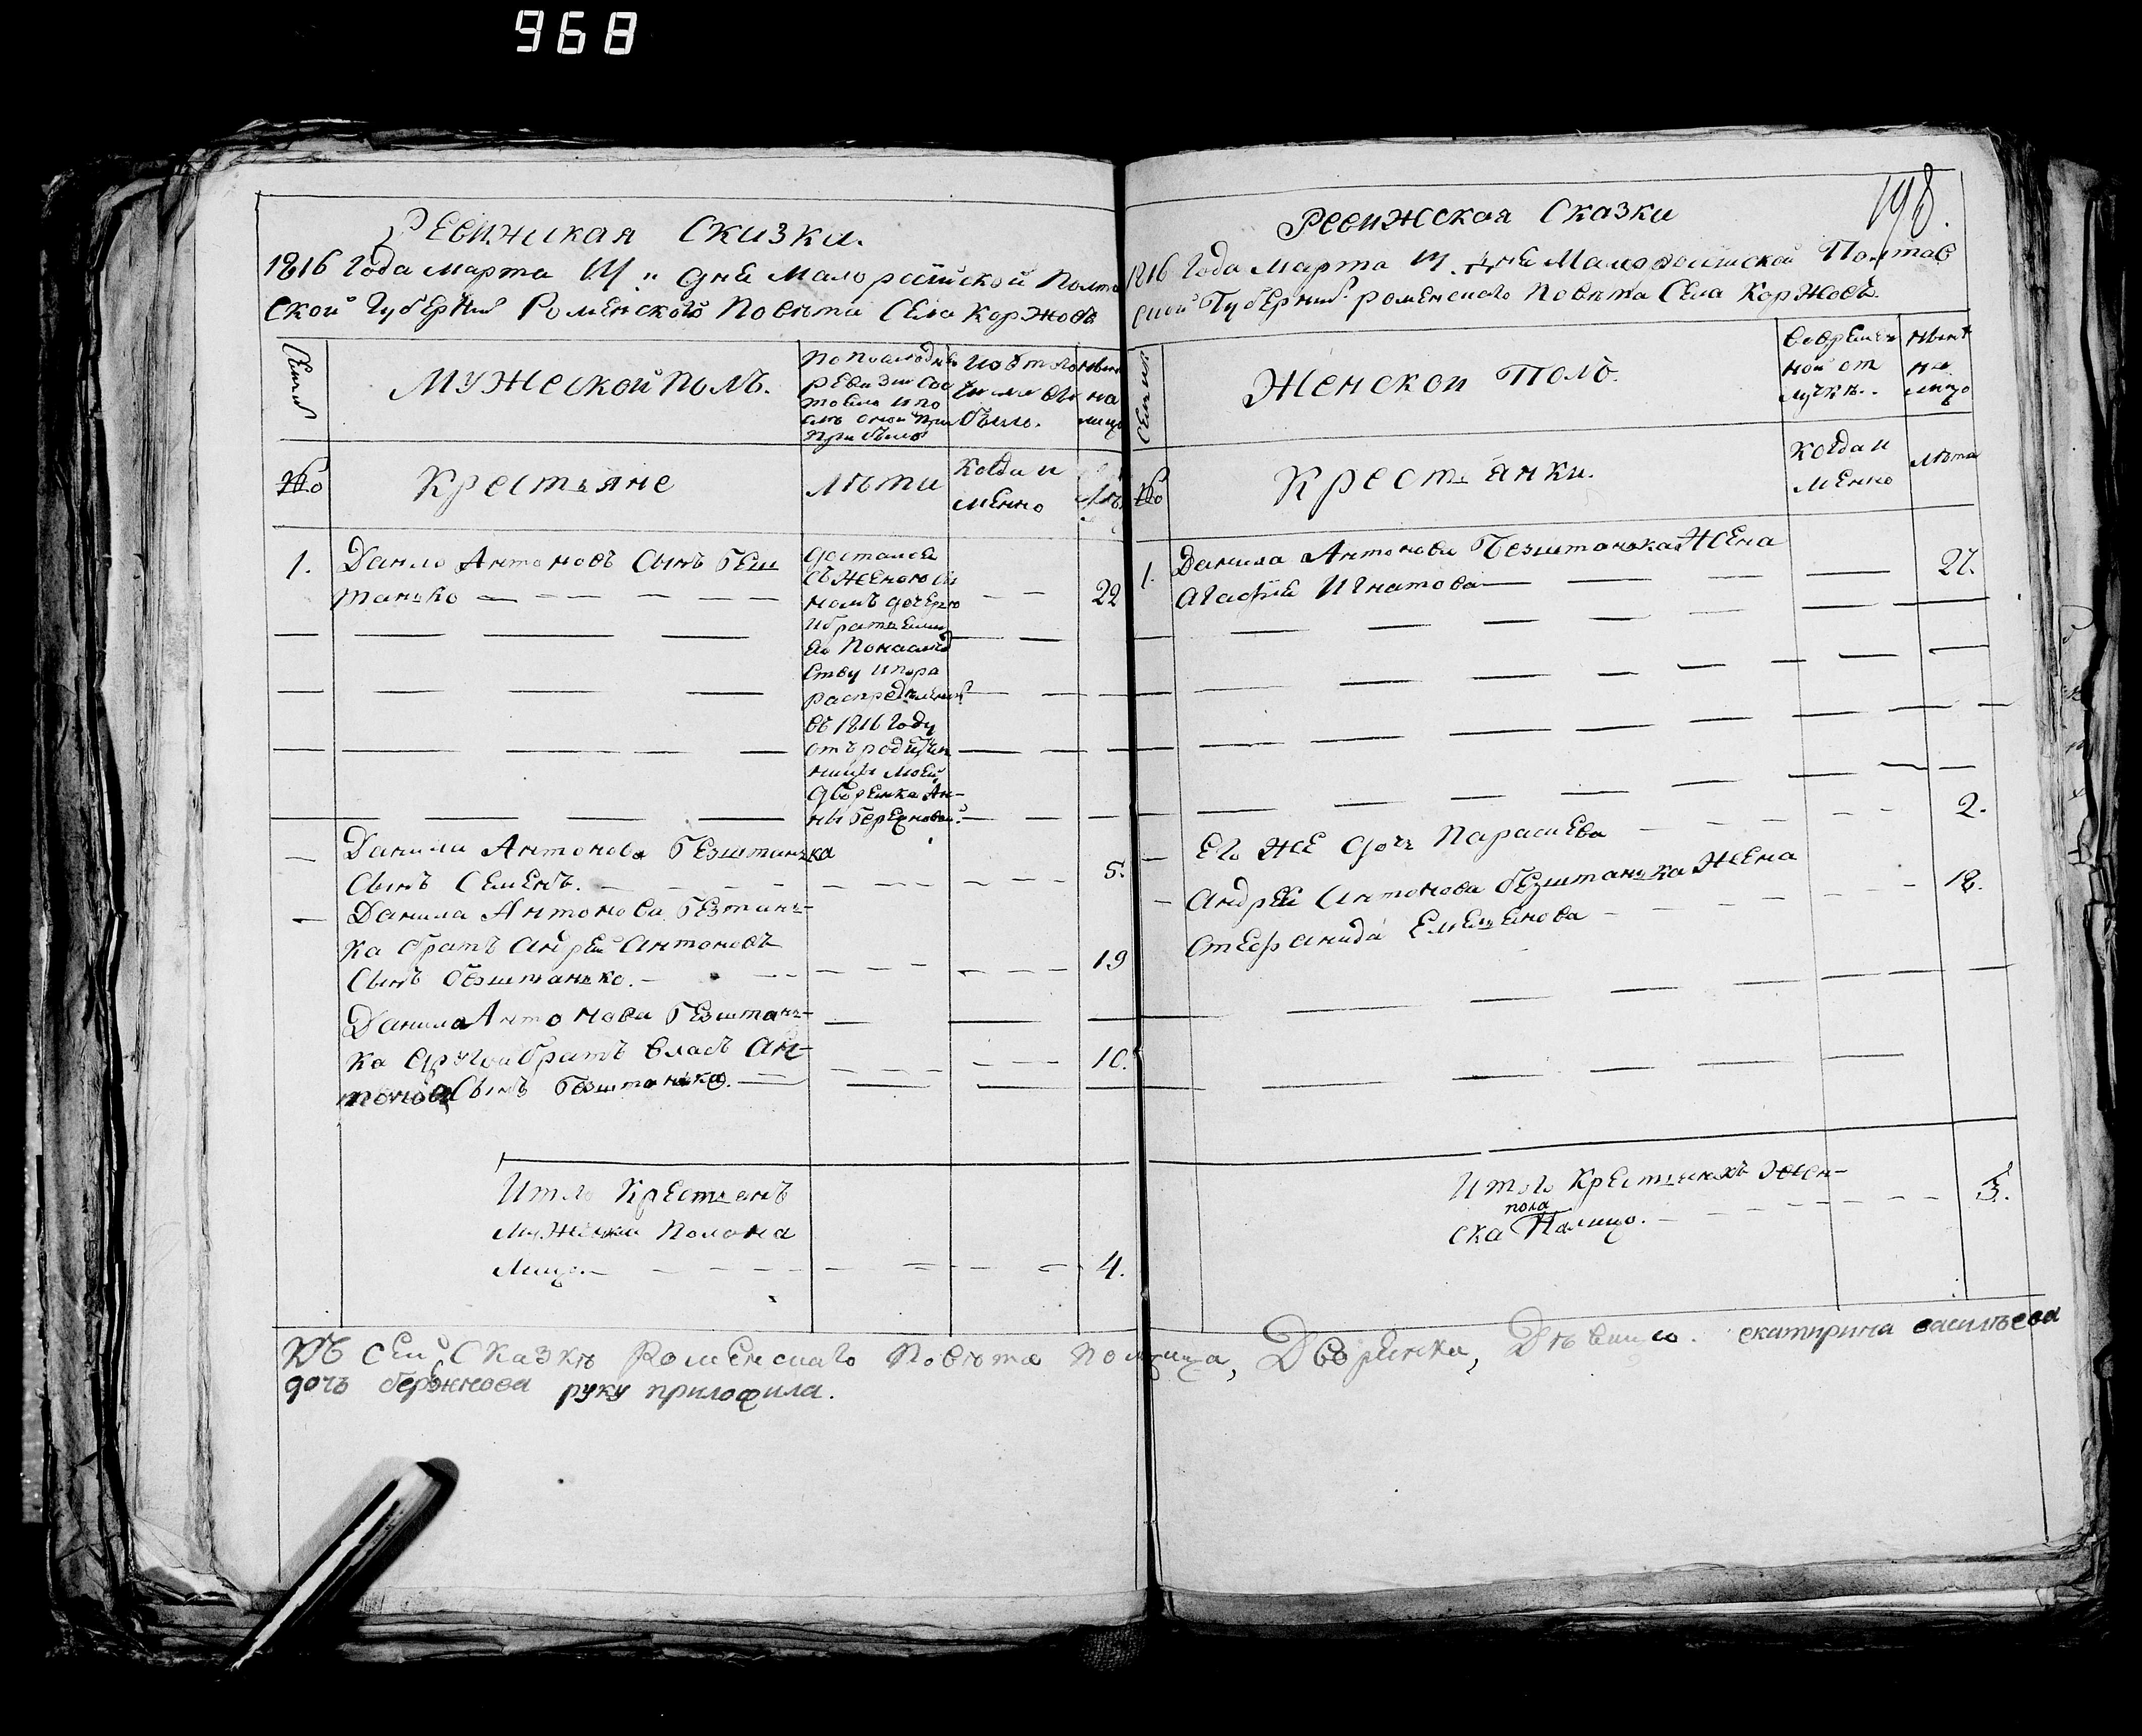 968
Ревижская Сказки.
1816 Года Марта дня Малороссійской Полта
ской Губерніи Роменского Повета Села Коржовъ
Семьи
Мужеской полъ.
По последней
ревизіи сос
тояло и по
слѣ оной при
прибыло
Изъ того
числа вы
было.
Ныне
на
лицо
№
Крестьяне
Лѣти
Когда и
менно
Лѣ
1.
Данило Антоновъ Сынъ Безш
танько
достался
съ женою сы
номъ дочерью
и братьями
по наслѣд
ству и по ра
распределенію
въ 1816 Году
отъ родитель
ницы моей
дворянки Ан-
ны Бережновой.
22
Данила Антонова Безштанька
Сынъ Семенъ.
5.
Данила Антонова Безтань-
ка братъ Андрей Антоновъ
Сынъ безштанько.
19
Данила Антонова Безштань-
ка другой братъ Власъ Ан-
тоновъ Сынъ Безштанько.
10.
Итого Крестьянъ
Мужеска Пола на
Лицо.
4.
198.
Ревижская Сказки
1816 Года Марта дня Малороссійской Полтав
ской Губерніи роменскаго Повѣта Села Коржовъ.
Семьи
Женской Полъ.
Во времен
ной от
лучкѣ.
Ныне
на
лицо
№
Крестьянки.
Когда и
менно
Лѣта
1.
Данила Антонова Безштанька Жена
Агафія Игнатова
22.
Его же дочь Параскева
2.
Андрей Антонова безштанька Жена
Стефанида Емельянова
18.
Итого Крестьянкъ Жен-
пола
ска Налицо.
3.
Къ сей Сказкѣ Роменскаго Повѣта Помѣщица, Дворянка, Дѣвица. екатирина васильева
дочь бережнова руку приложила.